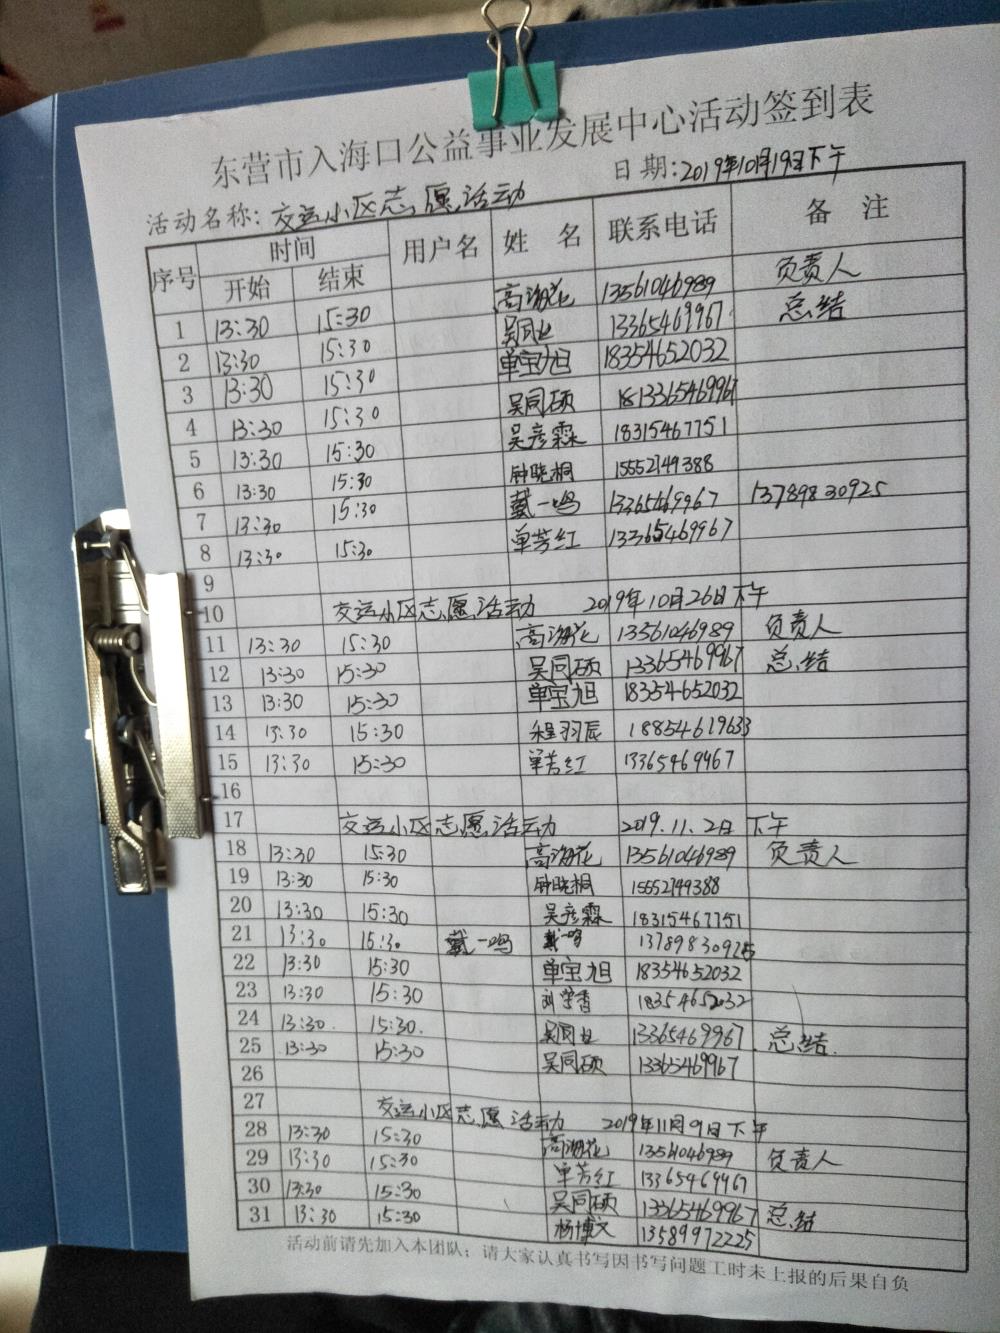 东营市入海口公益事业发展中心活动签到表
活动名称: 交运小区志愿活动 日期:2019年10月19日下午
序号 时间 用户名 姓名 联系电话 备注
开始 结束
1 13:30 15:30 高海花 13561046989 负责人
2 13:30 15:30 吴同业 13365469967 总结
3 13:30 15:30 单宝旭 18354652032
4 13:30 15:30 吴同硕 13365469967
5 13:30 15:30 吴彦霖 18315467751
6 13:30 15:30 钟晓桐 15552149388
7 13:30 15:30 戴一鸣 13365469967 13789830925
8 13:30 15:30 单芳红 13365469967
9
10 交运小区志愿活动 2019年10月26日下午
11 13:30 15:30 高海花 13561046989 负责人
12 13:30 15:30 吴同硕 13365469967 总结
13 13:30 15:30 单宝旭 18354652032
14 13:30 15:30 程羽辰 18854619633
15 13:30 15:30 单芳红 13365469967
16
17 交运小区志愿活动 2019.11.2日 下午
18 13:30 15:30 高海花 13561046989 负责人
19 13:30 15:30 钟晓桐 15552149388
20 13:30 15:30 吴彦霖 18315467751
21 13:30 15:30 戴一鸣 戴一鸣 13789830925
22 13:30 15:30 单宝旭 18354652032
23 13:30 15:30 刘学香 18354652032
24 13:30 15:30 吴同业 13365469967 总结
25 13:30 15:30 吴同硕 13365469967
26
27 交运小区志愿活动 2019年11月9日下午
28 13:30 15:30 高海花 13561046989 负责人
29 13:30 15:30 单芳红 13365469967
30 13:30 15:30 吴同硕 13365469967 总结
31 13:30 15:30 杨博文 13589972225
活动前请先加入本团队;请大家认真书写因书写问题工时未上报的后果自负